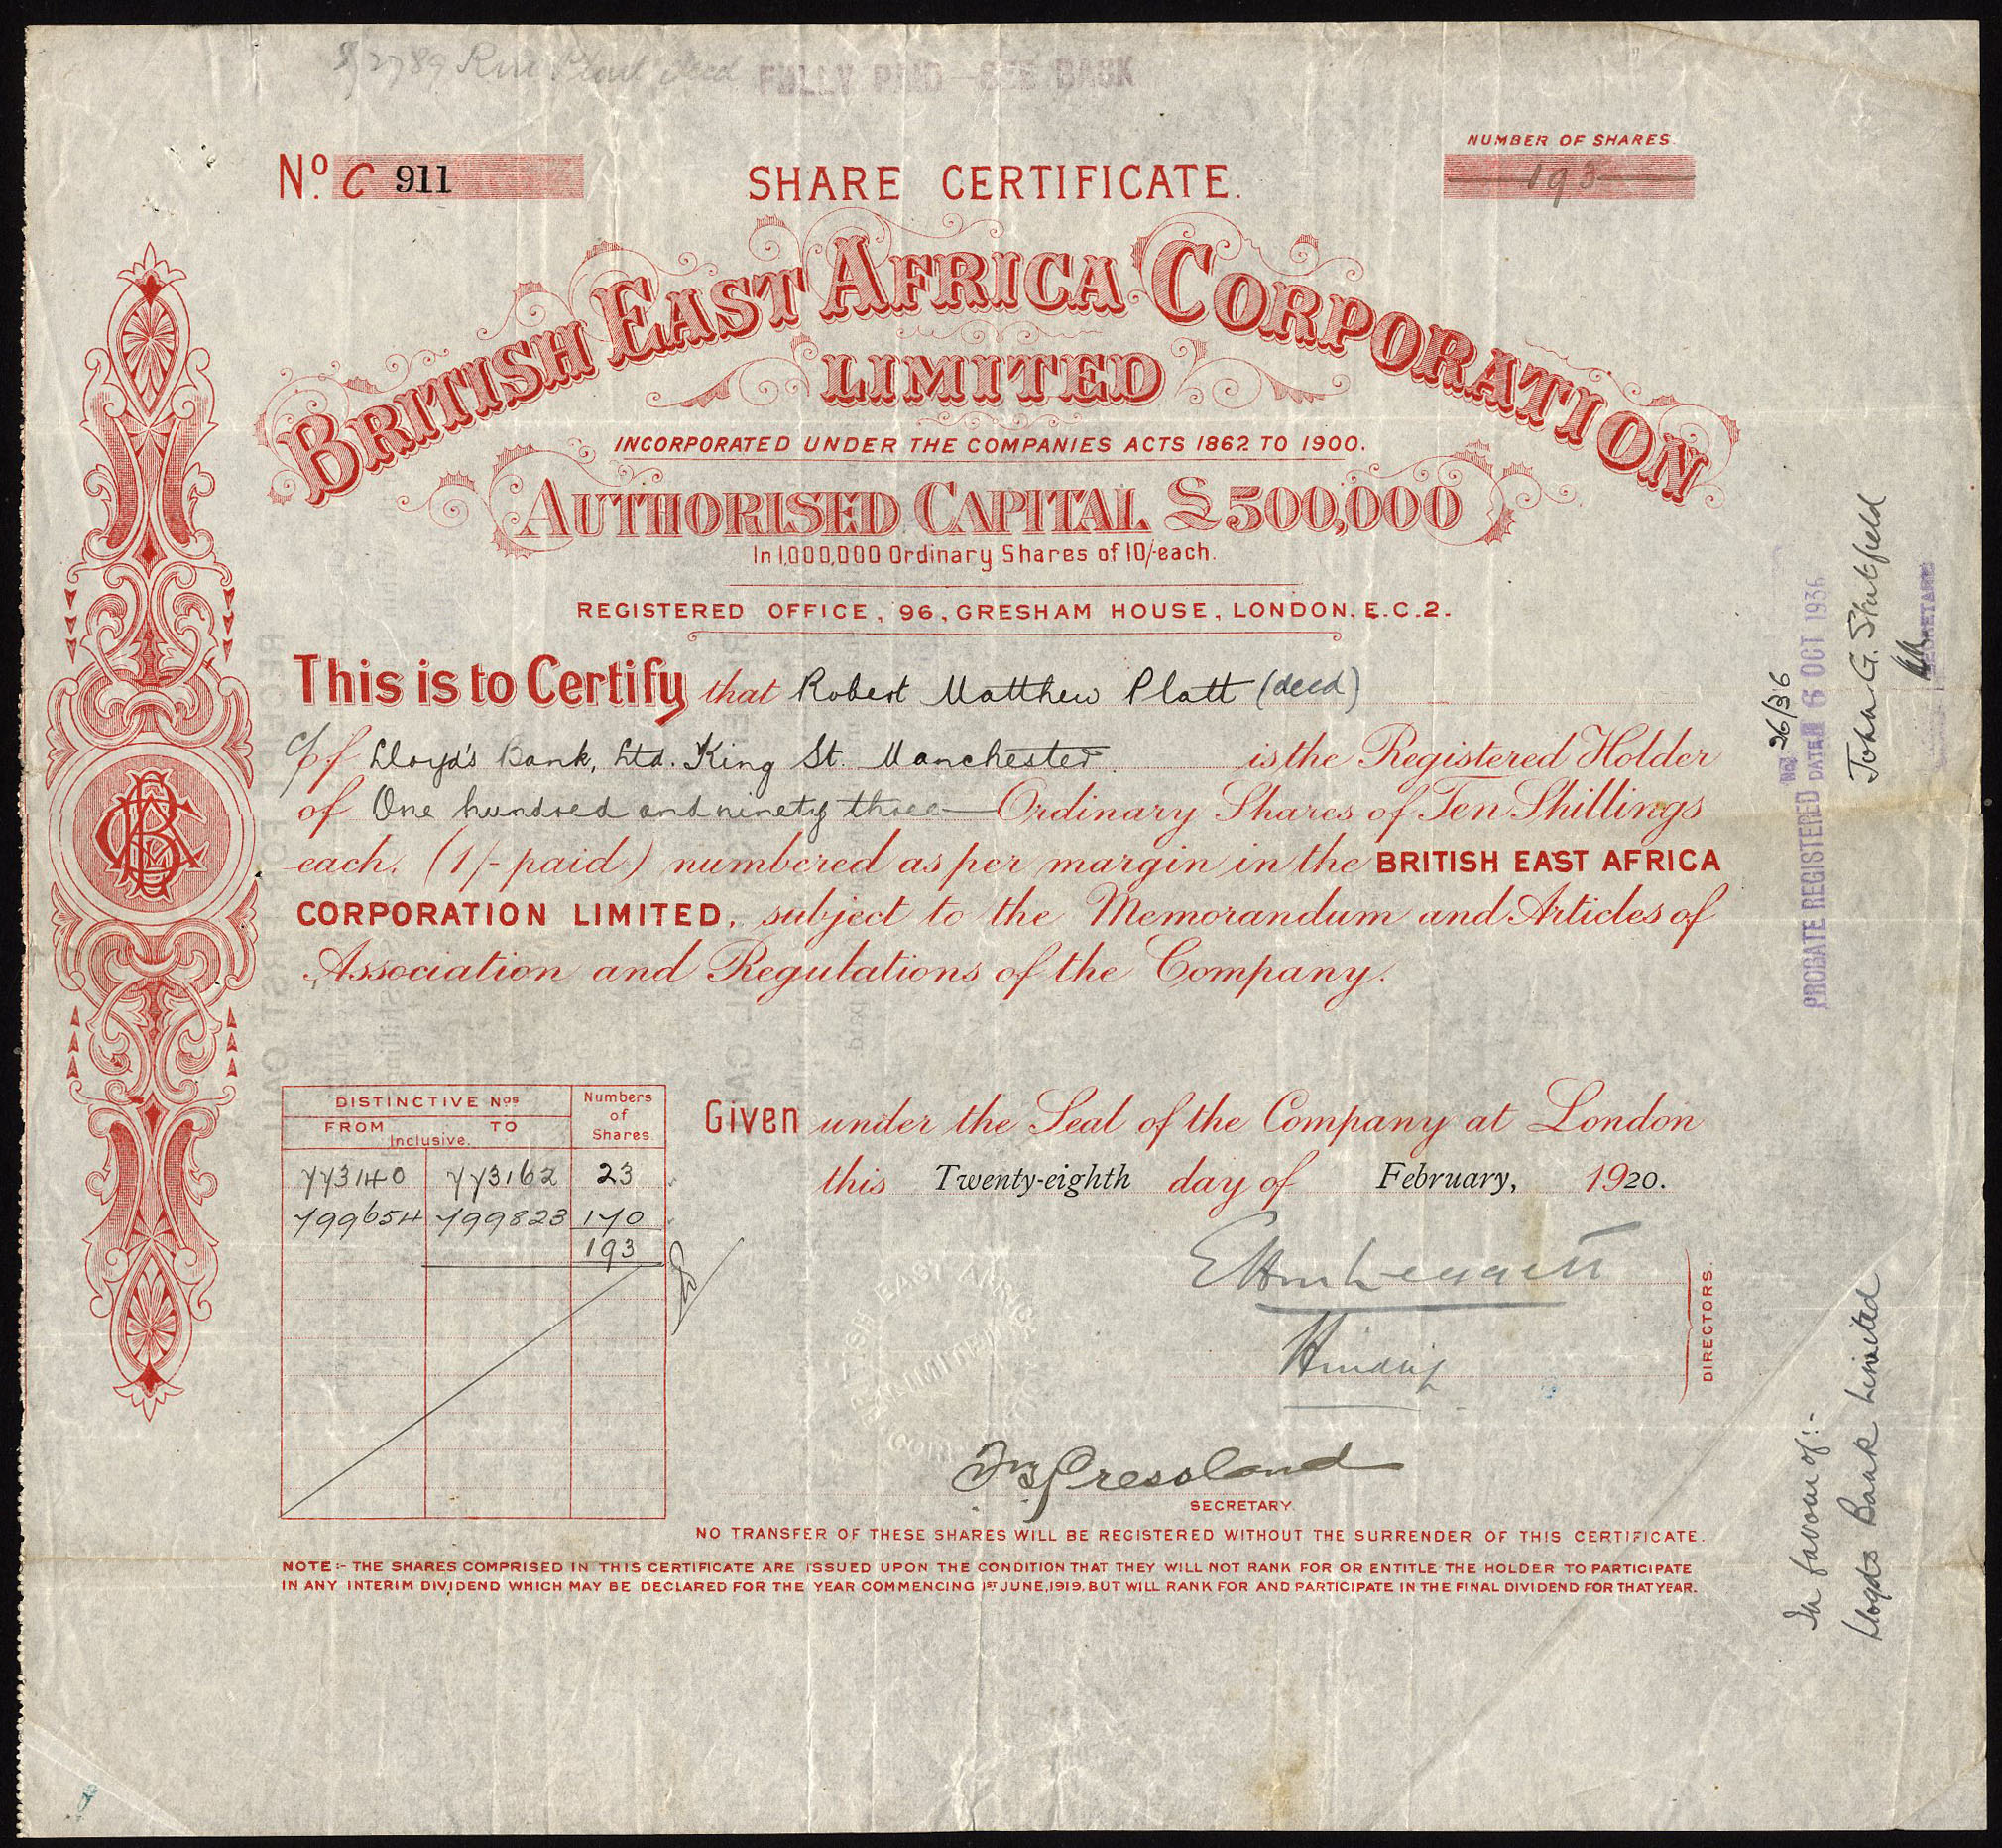 FULLY PAID - SEE BACK
No. C 911
SHARE CERTIFICATE.
NUMBER OF SHARES.
193
BRITISH EAST AFRICA CORPORATION
LIMITED
INCORPORATED UNDER THE COMPANIES ACTS 1862 TO 1900.
AUTHORISED CAPITAL £500,000
In 1,000,000 Ordinary Shares of 10/- each.
REGISTERED OFFICE, 96, GRESHAM HOUSE, LONDON, E.C.2.
This is to Certify that Robert Matthew Platt (decd)
Lloyd's Bank, Ltd. King St. Manchester is the Registered Holder
of One hundred and ninety three Ordinary Shares of Ten Shillings
each, (1/- paid) numbered as per margin in the BRITISH EAST AFRICA
CORPORATION LIMITED, subject to the Memorandum and Articles of
Association and Regulations of the Company.
DISTINCTIVE Nos Numbers of Shares.
FROM Inclusive. TO
773140 773162 23
799654 799823 170
193
Given under the Seal of the Company at London
this Twenty-eighth day of February, 1920.
DIRECTORS.
SECRETARY.
NO TRANSFER OF THESE SHARES WILL BE REGISTERED WITHOUT THE SURRENDER OF THIS CERTIFICATE.
NOTE:- THE SHARES COMPRISED IN THIS CERTIFICATE ARE ISSUED UPON THE CONDITION THAT THEY WILL NOT RANK FOR OR ENTITLE THE HOLDER TO PARTICIPATE
IN ANY INTERIM DIVIDEND WHICH MAY BE DECLARED FOR THE YEAR COMMENCING 1ST JUNE, 1919, BUT WILL RANK FOR AND PARTICIPATE IN THE FINAL DIVIDEND FOR THAT YEAR.
No. 26/36
PROBATE REGISTERED DATED 6 OCT 1936
John G. Stutfield
SECRETARY
In favour of:-
Lloyds Bank Limited